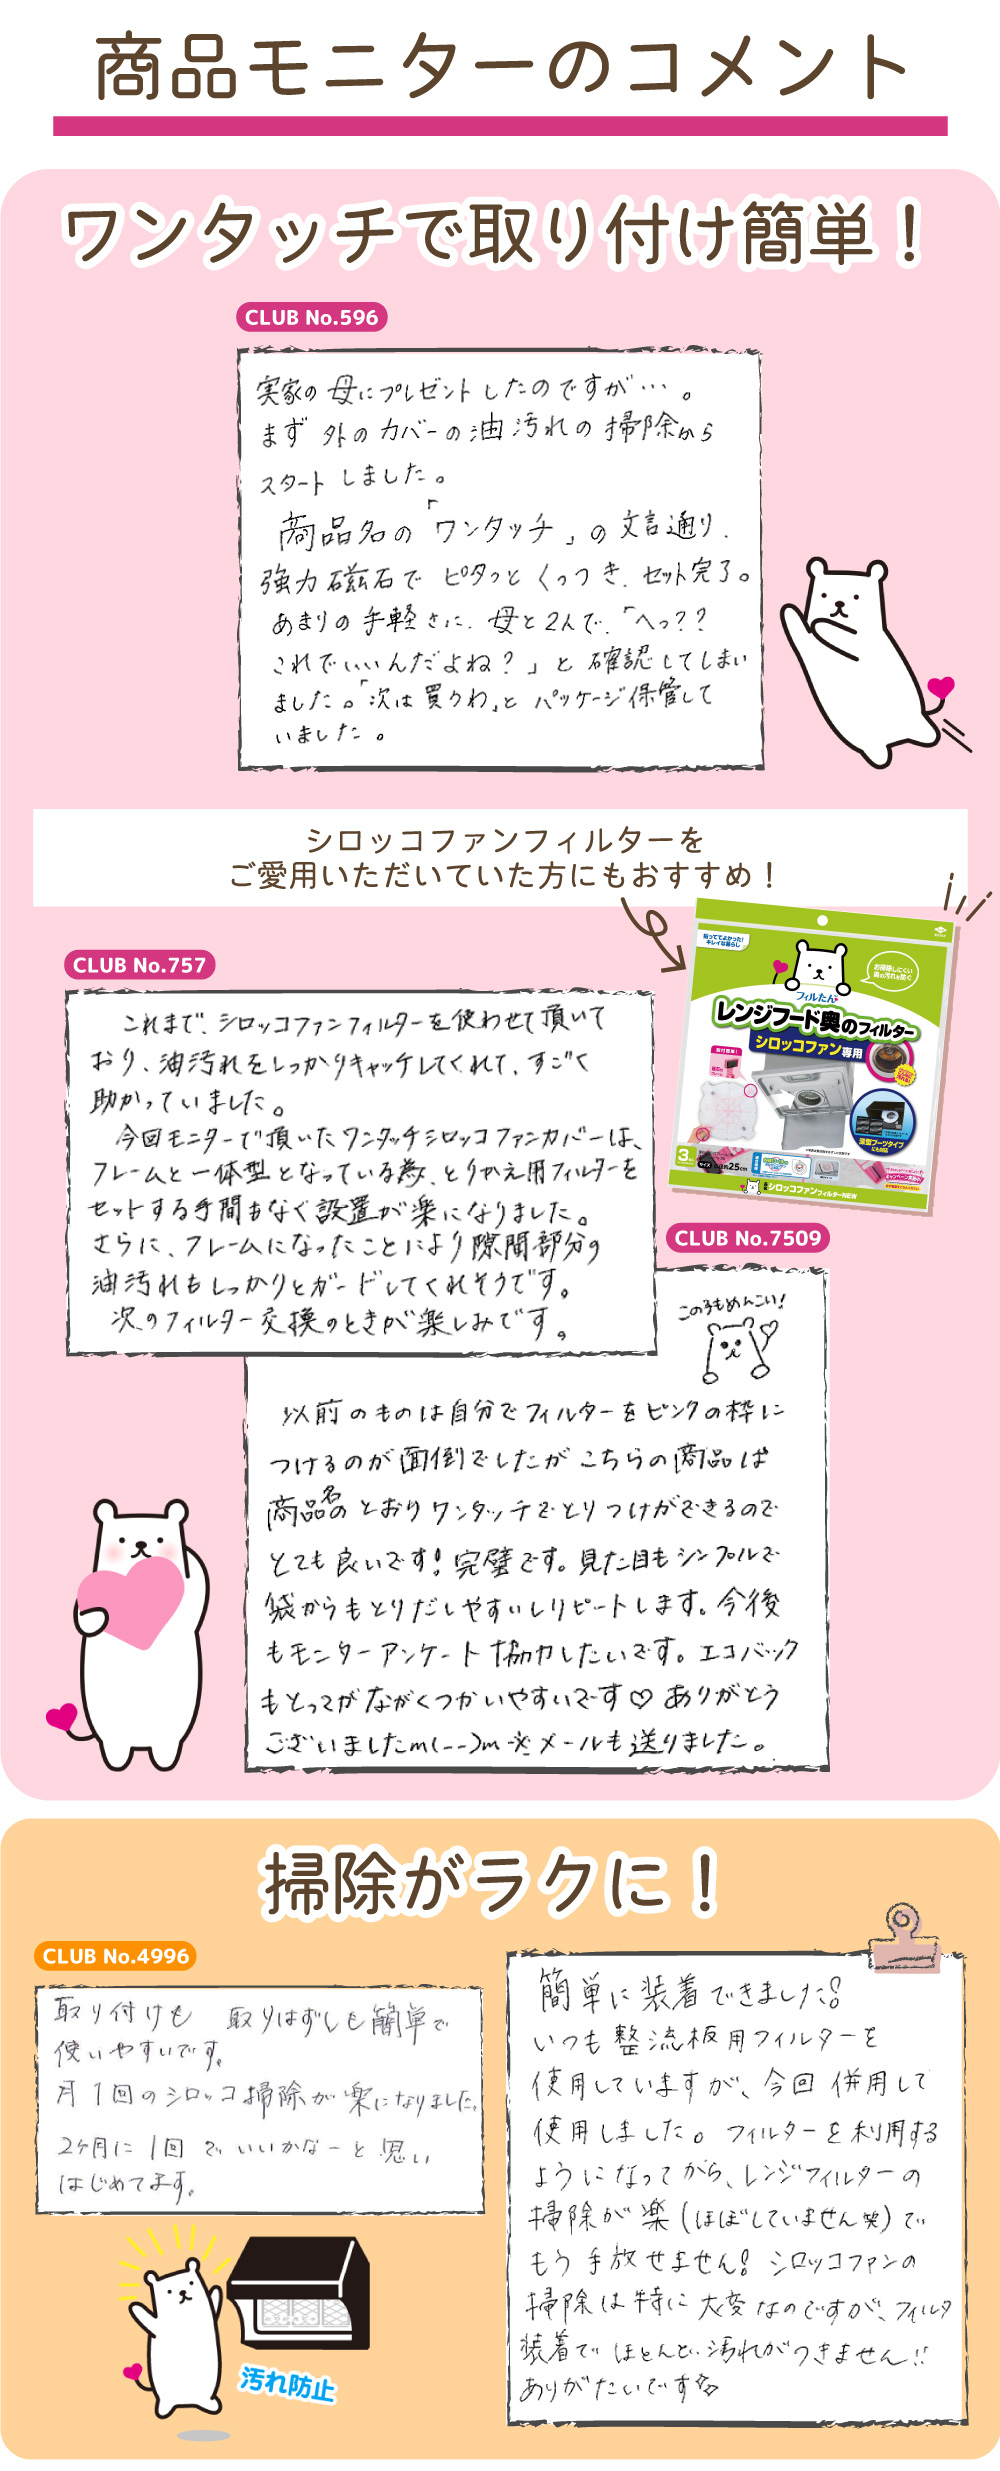 商品モニターのコメント
ワンタッチで取り付け簡単!
CLUB No.596
実家の母にプレゼントしたのですが…。
まず外のカバーの油汚れの掃除から
スタートしました。
商品名の「ワンタッチ」の文言通り、
強力磁石でピタっとくっつき、セット完了。
あまりの手軽さに、母と2人で、「へっ??
これでいいんだよね?」と確認してしまい
ました。「次は買うわ」とパッケージ保管して
いました。
シロッコファンフィルターを
ご愛用いただいていた方にもおすすめ!
貼っててよかった!
キレイな暮らし
お掃除しにくい
奥の汚れを防ぐ
フィルたん
レンジフード奥のフィルター
シロッコファン専用
深型ブーツタイプ
にも対応
3
サイズ
約25cm
シロッコファンフィルターNEW
CLUB No.757
これまで、シロッコファンフィルターを使わせて頂いて
おり、油汚れをしっかりキャッチしてくれて、すごく
助かっていました。
今回モニターで頂いたワンタッチシロッコファンカバーは、
フレームと一体型となっている為、とりかえ用フィルターを
セットする手間もなく設置が楽になりました。
さらに、フレームになったことにより隙間部分の
油汚れもしっかりとガードしてくれそうです。
次のフィルター交換のときが楽しみです。
CLUB No.7509
この子もめんこい!
以前のものは自分でフィルターをピンクの枠に
つけるのが面倒でしたがこちらの商品は
商品名のとおりワンタッチでとりつけができるので
とても良いです!完璧です。見た目もシンプルで
袋からもとりだしやすいしリピートします。今後
もモニターアンケート協力したいです。エコバック
もとってがながくつかいやすいです♡ありがとう
ございましたm(--)m※メールも送りました。
掃除がラクに!
CLUB No.4996
取り付けも 取りはずしも簡単で
使いやすいです。
月1回のシロッコ掃除が楽になりました。
2ヶ月に1回でいいかなーと思い
はじめてます。
汚れ防止
簡単に装着できました!
いつも整流板用フィルターを
使用していますが、今回併用して
使用しました。フィルターを利用する
ようになってから、レンジフィルターの
掃除が楽(ほぼしていません笑)で
もう手放せません!シロッコファンの
掃除は特に大変なのですが、フィルタ
装着でほとんど汚れがつきません!!
ありがたいです☆